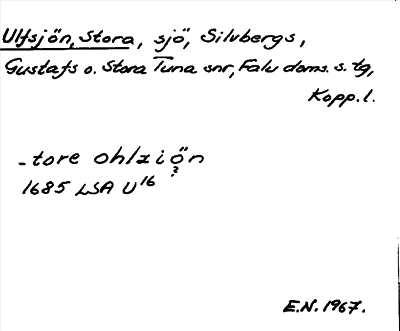 Ulfsjön, Stora, sjö, Silvbergs,
Gustafs o. Stora Tuna snr, Falu doms. s. tg,
Kopp. l.
- tore ohlziön
?
1685 LSA U16
E.N. 1967.